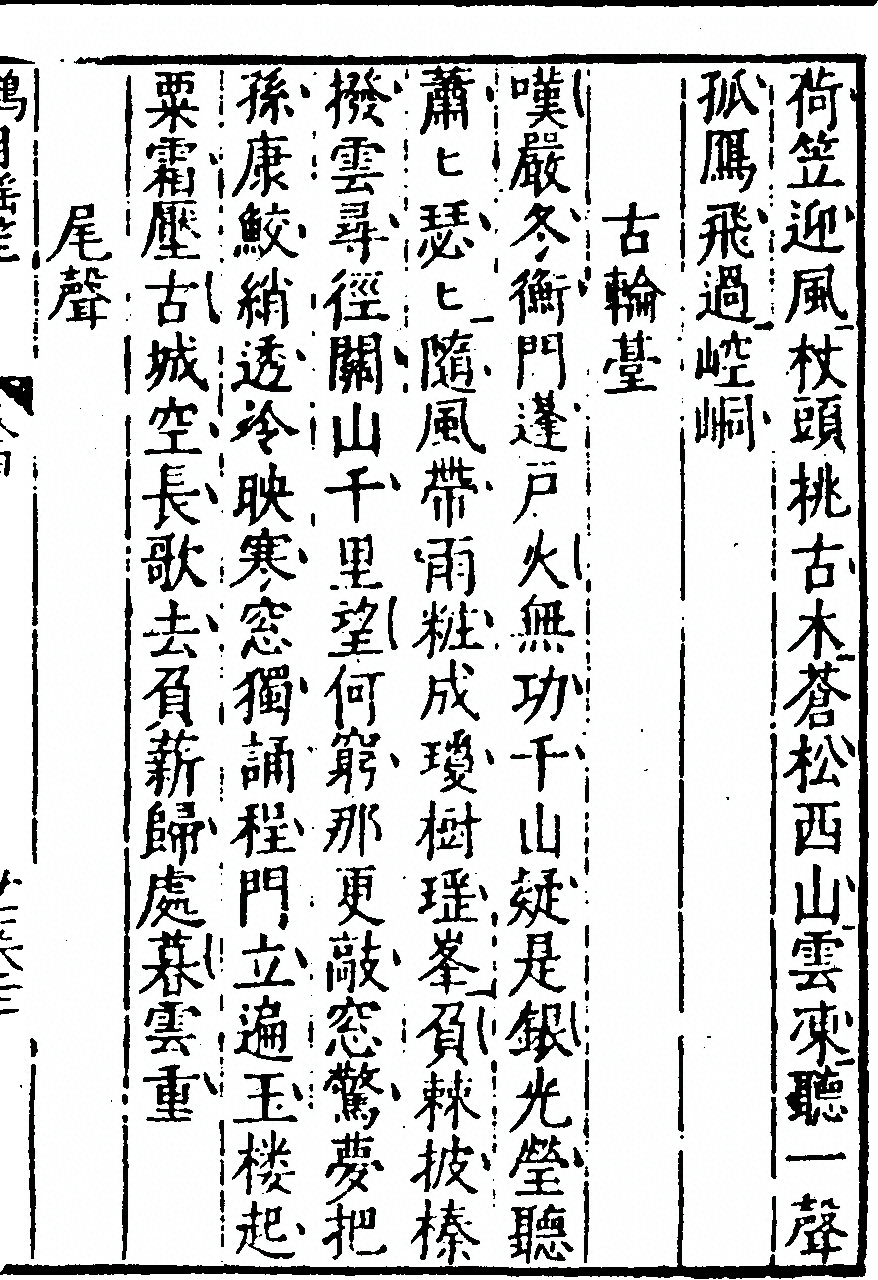 荷笠迎風杖頭挑古木蒼松西山雲凍聽一聲
孤鴈飛過崆峒
古輪臺
嘆嚴冬衡門蓬戸火無功千山疑是銀光瑩聽
蕭ヒ瑟ヒ隨風帶雨粧成瓊樹瑶峯負棘披榛
撥雲尋徑關山千里望何窮那更敲窓驚夢把
孫康鮫綃透冷映寒窓獨誦程門立遍玉楼起
粟霜壓古城空長歌去負薪歸處暮雲重
尾聲